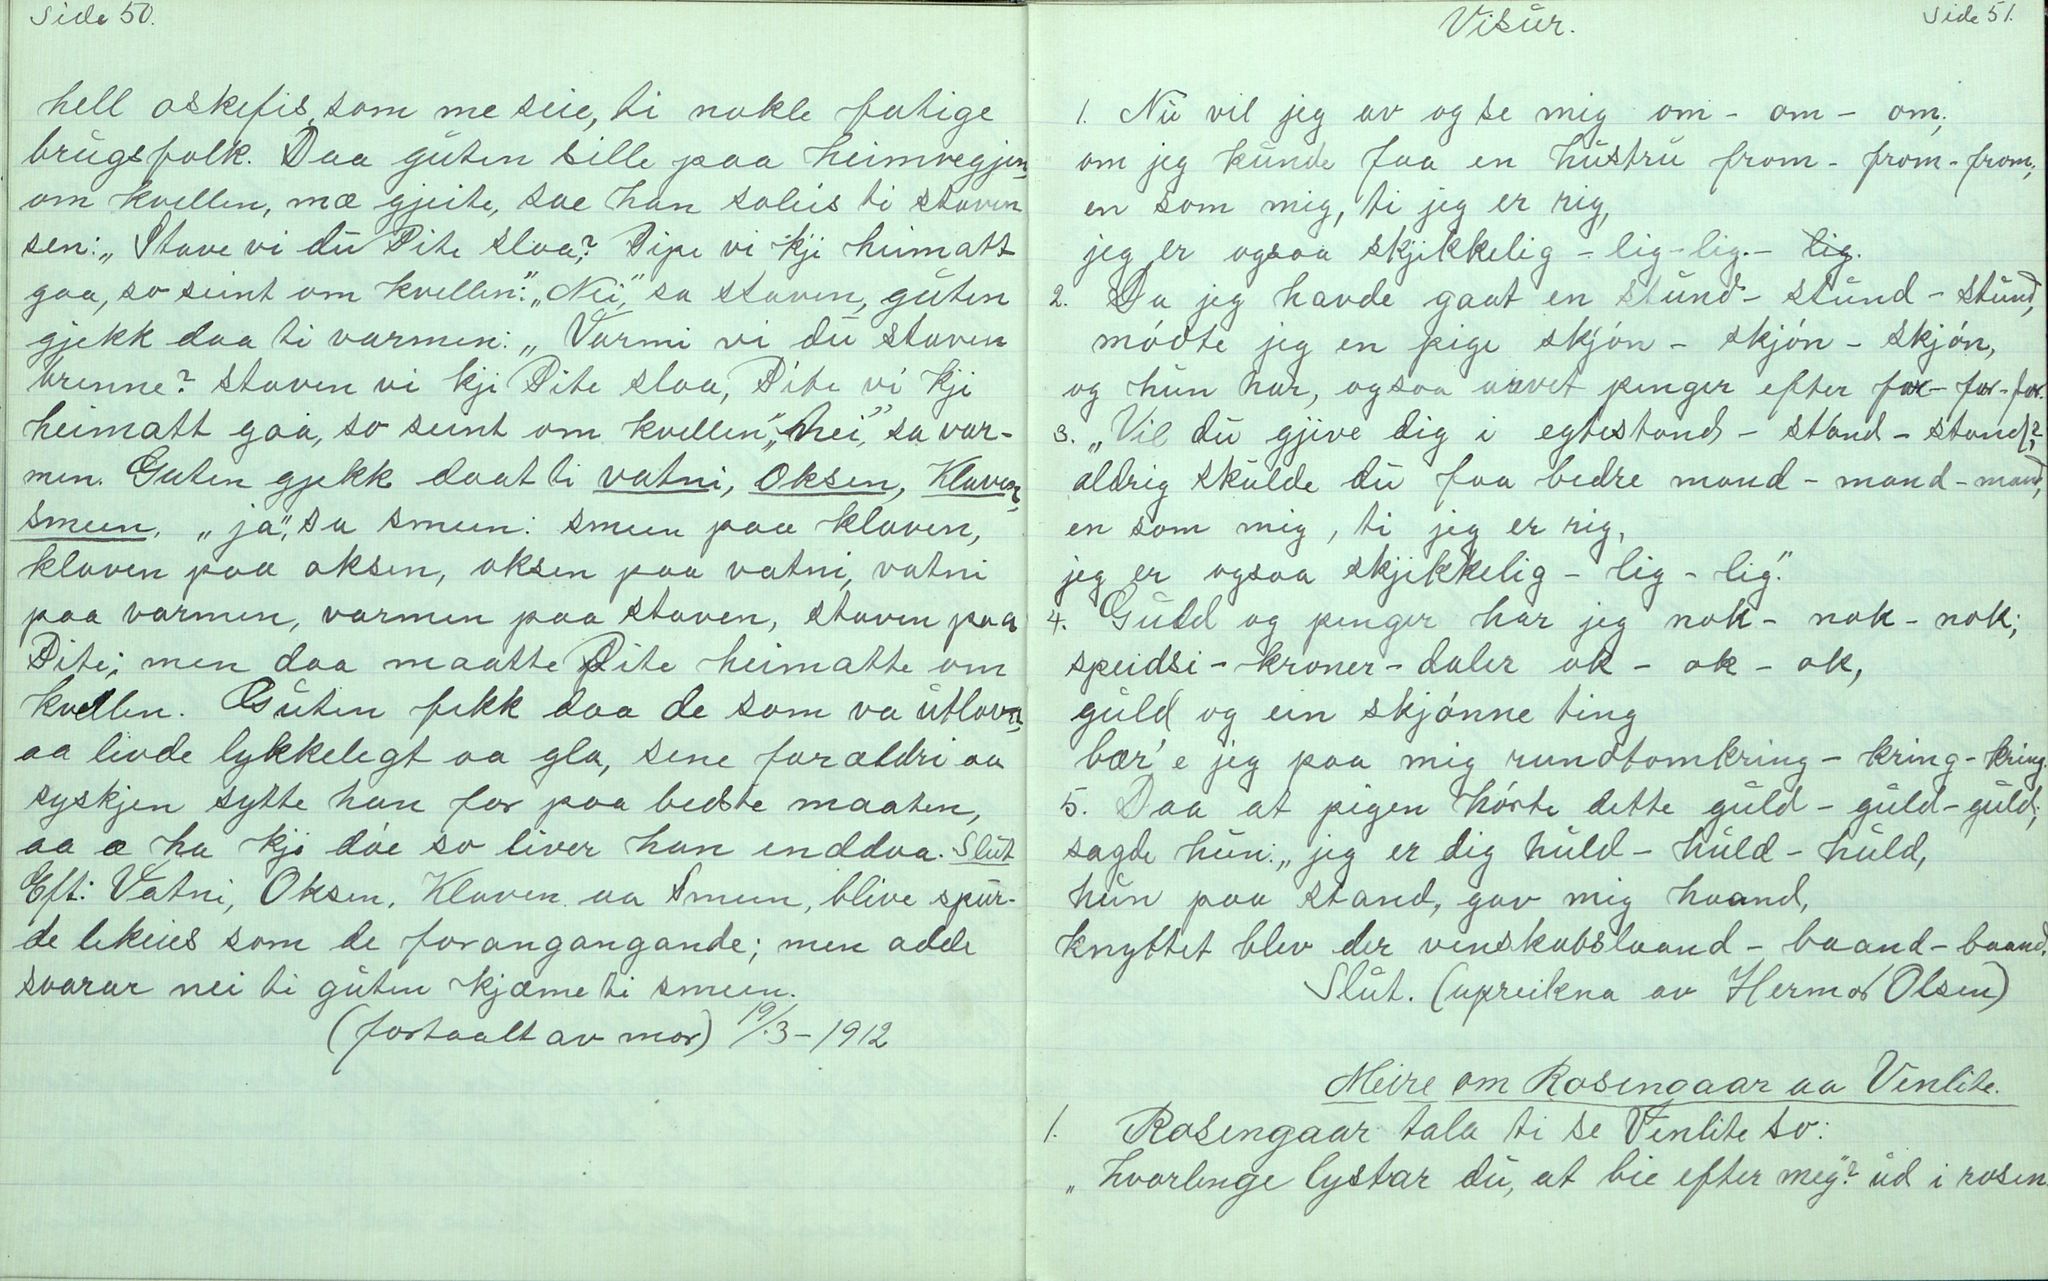 Side 50.
hell oskefis, som me seie, ti nokle fatige
brugsfolk. Daa guten sille paa heimvegjen,
om kvellen, mæ gjeite, sae han soleis ti staven
sen: „Stave vi du Pite slaa? Pipe vi kji heimatt
gaa, so seint om kvellen." „Nei," sa staven, guten
gjekk daa ti varmen: „Varmi vi du staven
brenne? staven vi kji Pite slaa, Pite vi kji
heimatt gaa, so seint om kvellen," „nei," sa var-
men. Guten gjekk daa ti vatni, Oksen, Klaven,
smeen. „ja", sa smeen: smeen paa klaven,
klaven paa oksen, oksen paa vatni, vatni
paa varmen, varmen paa staven, staven paa
Pite; men daa maatte Pite heimatte om
kvellen. Guten fekk daa de som va utlova,
aa livde lykkelegt aa gla, sine foraldri aa
syskjen sytte han for paa bedste maaten,
aa æ ha kji døe so liver han enddaa. Slut
Eft: Vatni, Oksen, Klaven aa Smeen, blive spur-
de likeies som de forangangande; men adde
svarar nei ti guten kjæme ti smeen.
(fortaalt av mor) 19/3-1912
Side 51.
Visur.
1. Nu vil jeg av og se mig om - om - om,
om jeg kunde faa en hustru from - from - from;
en som mig, ti jeg er rig,
jeg er ogsaa skjikkelig - lig - lig. - lig.
2. Da jeg havde gaat en stund - stund - stund,
mødte jeg en pige skjøn - skjøn - skjøn,
og hun har, ogsaa arvet penger efter far - far - far.
3. „Vil du gjive dig i egtestand - stand - stand?
aldrig skulde du faa bedre mand - mand - mand,
en som mig, ti jeg er rig,
jeg er ogsaa skjikkelig - lig - lig."
4. Guld og penger har jeg nok - nok - nok;
speidsi - kroner - daler ok - ok - ok,
guld og ein skjønne ting
bær'e jeg paa mig rundtomkring - kring - kring.
5. Daa at pigen hørte dette guld - guld - guld;
sagde hun: „jeg er dig huld - huld - huld,
hun paa stand, gav mig haand,
knyttet blev der venskabsbaand - baand - baand.
Slut. (upreikna av Hermor Olsen)
Meire om Rosengaar aa Venlite.
1. Rosengaar tala ti se Venlite so:
„hvorlenge lystar du, at bie efter meg"? ud i rosen